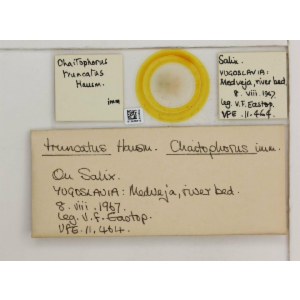 Chaitophorus
truncatus
Hausm.
imm
Salix.
YUGOSLAVIA:
Medveja, river bed
8. viii. 1967.
leg. V.F. Eastop.
VPE. 11,464.
truncatus Hausm. Chaitophorus imm.
On Salix.
YUGOSLAVIA: Medveja, river bed.
8. viii. 1967.
leg. V. F. Eastop.
VPE. 11,464.